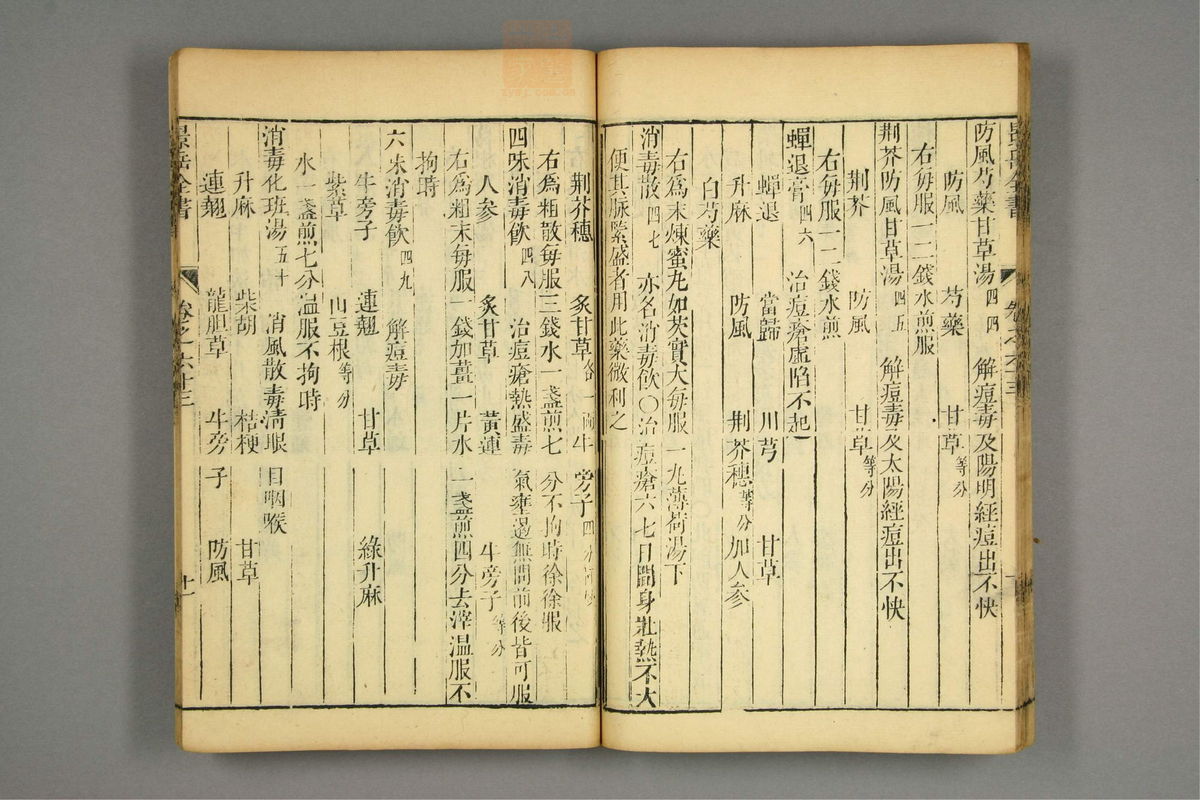 防風芍藥甘草湯 四四 解痘毒及陽明經痘出不快
防風 芍藥 甘草 等分
右每服一二錢水煎服
荆芥防風甘草湯 四五 解痘毒及太陽經痘出不快
荆芥 防風 甘草 等分
右每服一二錢水煎
蟬退膏 四六 治痘瘡虛陷不起
蟬退 當歸 川芎 甘草
升麻 防風 荆芥穗 等分 加人參
白芍藥
右為末煉蜜丸如芡實大每服一丸薄荷湯下
消毒散 四七 亦名消毒飲〇治痘瘡六七日間身壯熱不大
便其脉緊盛者用此藥微利之
荆芥穗 炙甘草 各一兩 牛旁子 四兩
右為粗散每服三錢水一盞煎七分不拘時徐徐服
四味消毒飲 四八 治痘瘡熱盛毒氣壅遏無問前後皆可服
人參 炙甘草 黃連 牛旁子 等分
右為粗末每服一錢加薑一片水一盞煎四分去滓温服不
拘時
六味消毒飲 四九 解痘毒
牛旁子 連翹 甘草 綠升麻
紫草 山豆根 等分
水一盞煎七分温服不拘時
消毒化班湯 五十 消風散毒清眼目咽喉
升麻 柴胡 桔梗 甘草
連翹 龍胆草 牛旁子 防風
景岳全書 卷之六十三 十一